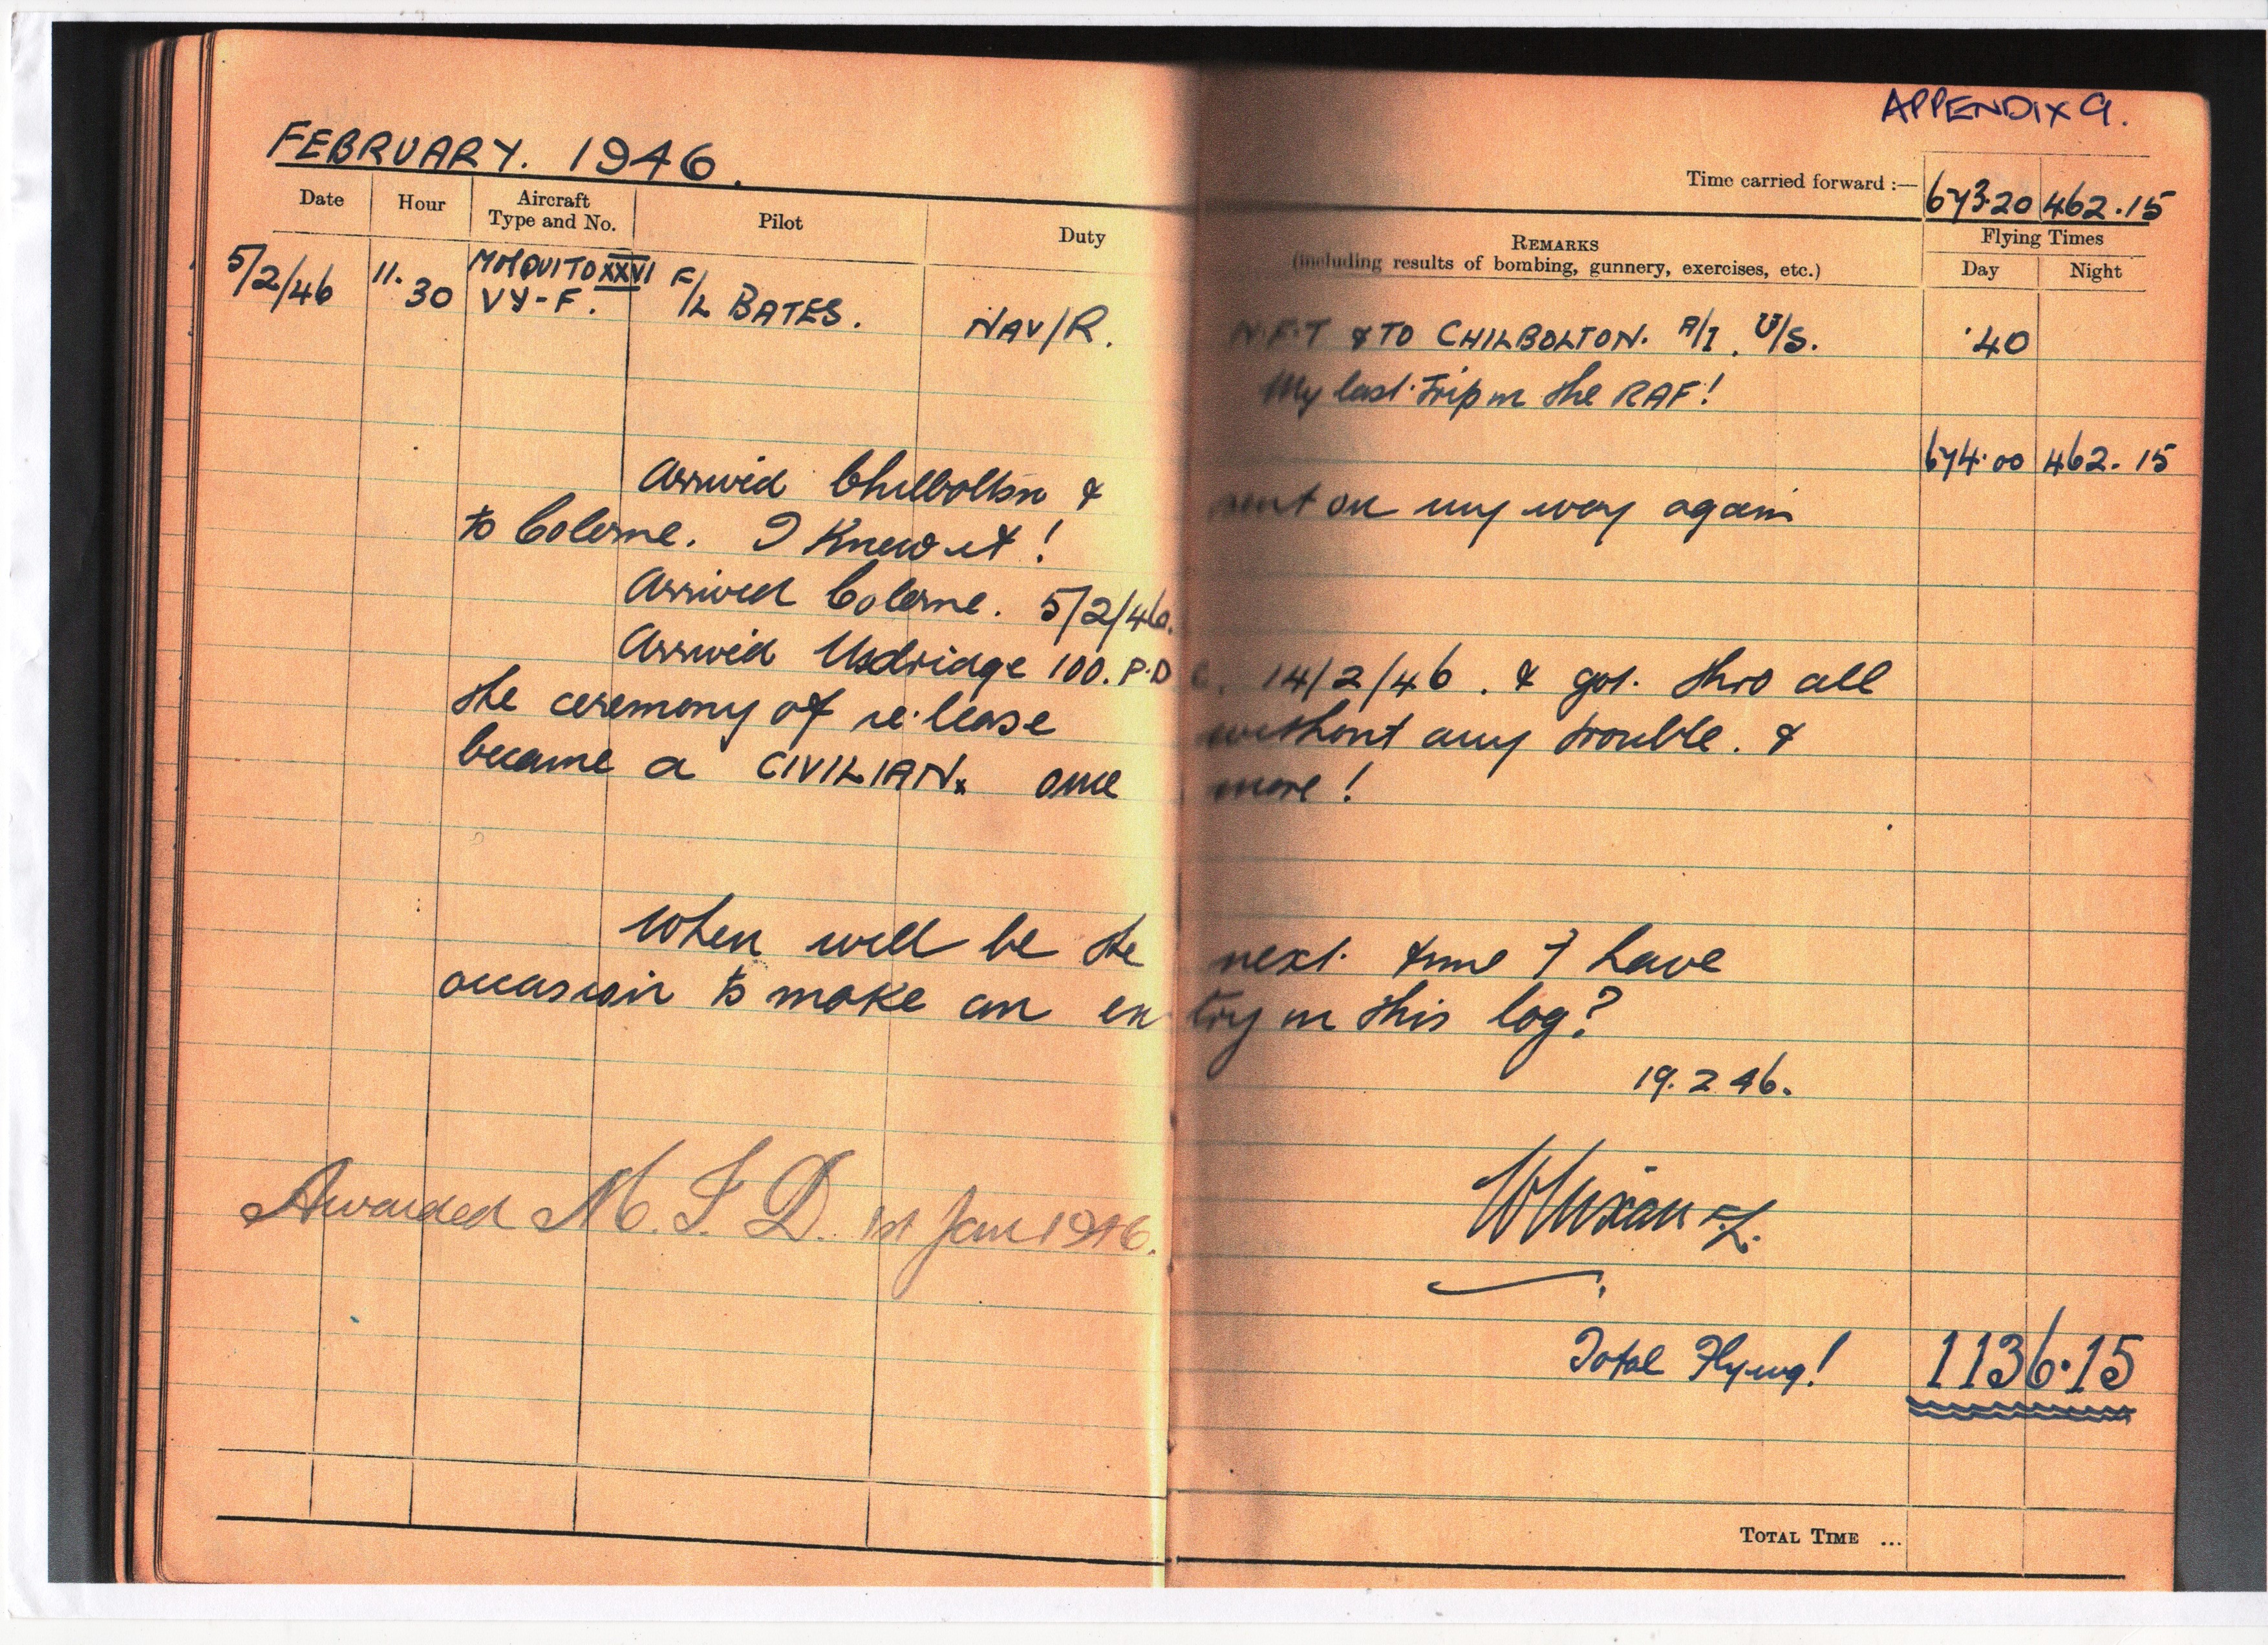 APPENDIX 9.
FEBRUARY. 1946.
Time carried forward :— 673.20 462.15
Date Hour Aircraft Type and No. Pilot Duty REMARKS (including results of bombing, gunnery, exercises, etc.) Flying Times Day Night
5/2/46 11.30 MOSQUITO XXVI VY-F. F/L BATES. NAV/R. N.F.T & TO CHILBOLTON. A/I. U/S. .40
My last trip in the RAF!
674.00 462.15
Arrived Chilbolton & sent on my way again
to Colerne. I Knew it!
Arrived Colerne. 5/2/46.
Arrived Uxbridge 100. P.D.C. 14/2/46. & got thro all
the ceremony of re.lease without any trouble. &
became a CIVILIAN. once more!
When will be the next time I have
occasion to make an entry in this log?
19.2.46.
Awarded M.I.D. 1st Jan 1946.
F/L.
Total Flying! 1136.15
TOTAL TIME ...